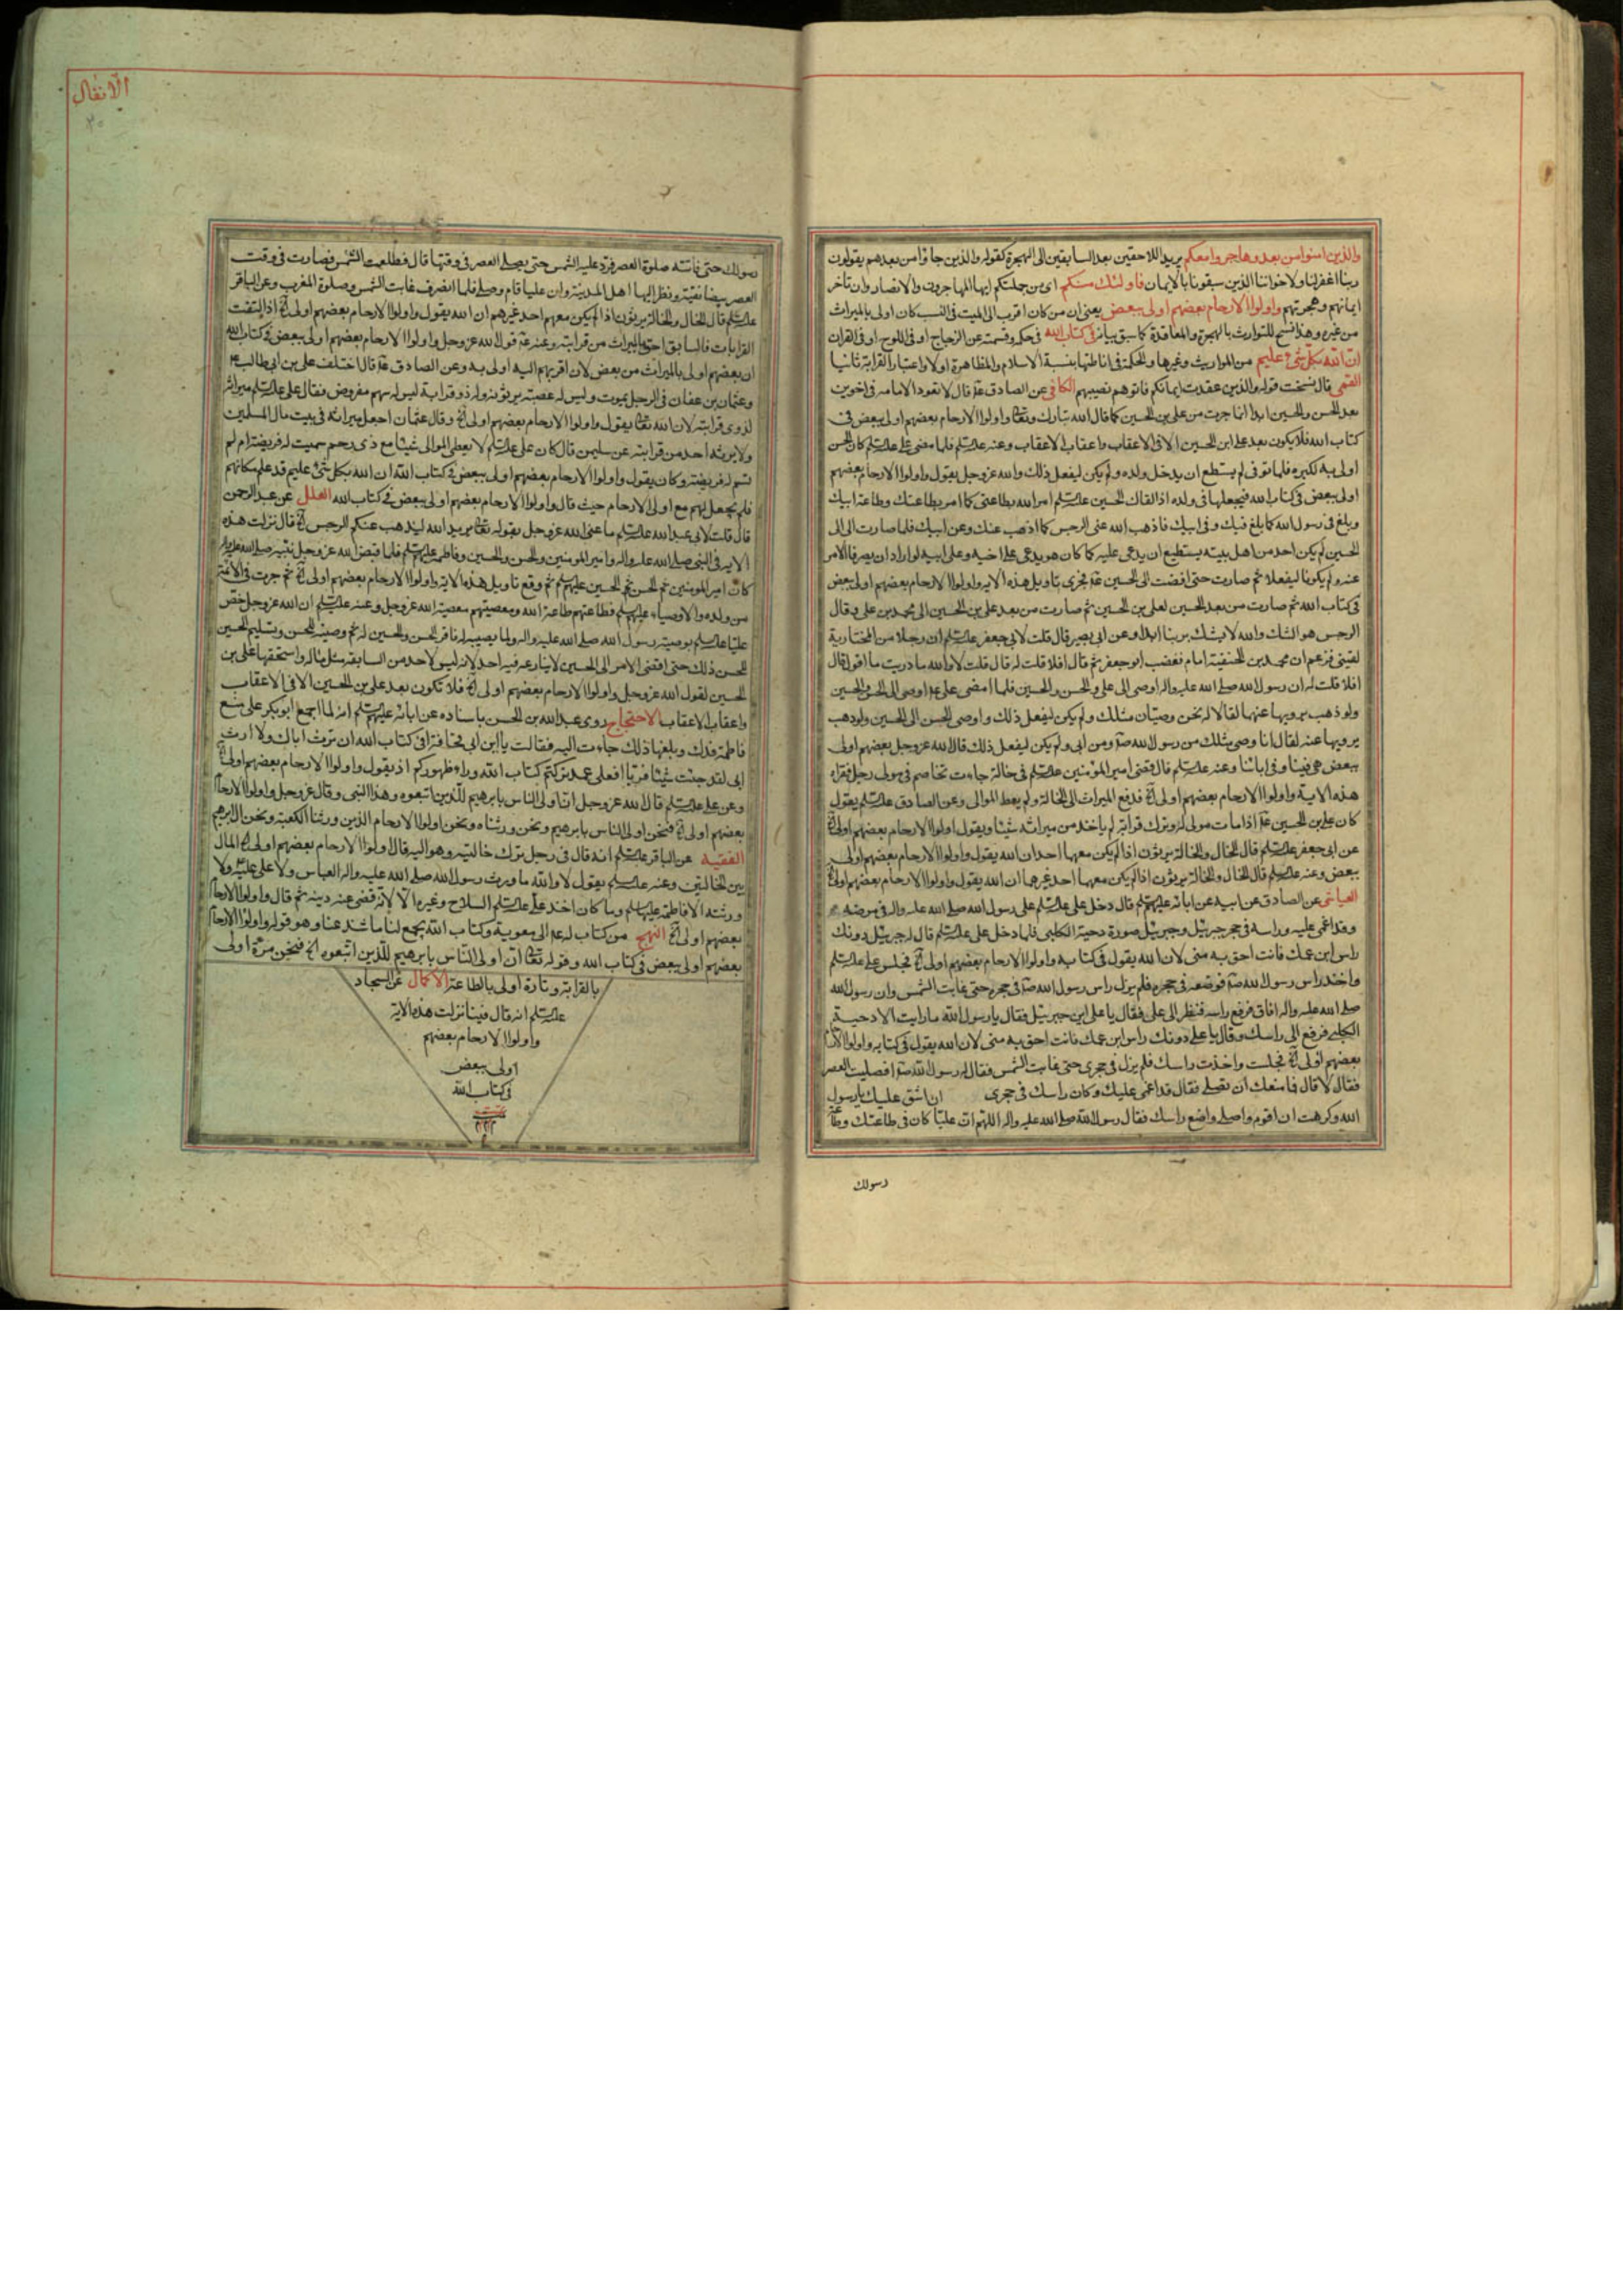 والذين امنوا من بعد وهاجروا معكم يريد اللاحقين بعد السابقين الى الهجرة كقوله والذين جاؤا من بعدهم يقولون
ربنا اغفر لنا ولاخواننا الذين سبقونا بالايمان فاولئك منكم اى من جملتكم ايها المهاجرون والانصار وان تاخر
ايمانهم وهجرتهم واولوا الارحام بعضهم اولى ببعض يعنى ان من كان اقرب الى الميت فى النسب كان اولى بالميراث
من غيره وهذا نسخ للتوارث بالهجرة والمعاقدة كما سبق بيانه فى كتاب الله فى حكمه وقسمته عن الزجاج او فى اللوح او فى القران
ان الله بكل شىء عليم من المواريث وغيرها والحكمة فى اناطتها بنسبة الاسلام والمظاهرة اولا واعتبار القرابة ثانيا
القمى قال نسخت قوله والذين عقدت ايمانكم فاتوهم نصيبهم الكافى عن الصادق ع قال لا تعود الامامه فى اخوين
بعد الحسن والحسين ابدا انما جرت من على بن الحسين كما قال الله تبارك وتعالى واولوا الارحام بعضهم اولى ببعض فى
كتاب الله فلا يكون بعد على ابن الحسين الا فى الاعقاب واعقاب الاعقاب وعنه عليه السلم فلما مضى على عليه السلم كان الحسن
اولى به لكبره فلما توفى لم يستطع ان يدخل ولده ولم يكن ليفعل ذلك والله عز وجل يقول واولوا الارحام بعضهم
اولى ببعض فى كتاب الله فيجعلها فى ولده اذا لقال الحسين عليه السلم امر الله بطاعتى كما امر بطاعتك وطاعة ابيك
وبلغ فى رسول الله كما بلغ فيك وفى ابيك فاذهب الله عنى الرجس كما اذهب عنك وعن ابيك فلما صارت الى
الحسين لم يكن احد من اهل بيته يستطيع ان يدعى عليه كما كان هو يدعى على اخيه وعلى ابيه لو ارادا ان يصرفا الامر
عنه ولم يكونا ليفعلا ثم صارت حتى افضت الى الحسين ع فجرى تاويل هذه الايه واولوا الارحام بعضهم اولى ببعض
فى كتاب الله ثم صارت من بعد الحسين لعلى بن الحسين ثم صارت من بعد على بن الحسين الى محمد بن على وقال
الرجس هو الشك والله لا نشك بربنا ابدا وعن ابى بصير قال قلت لابى جعفر عليه السلم ان رجلا من المختارية
لقينى فزعم ان محمد بن الحنفية امام فغضب ابو جعفر ثم قال افلا قلت له قال قلت لا والله ما دريت ما اقول قال
افلا قلت له ان رسول الله صلى الله عليه واله اوصى الى على والحسن والحسين فلما مضى على ع اوصى الى الحسن والحسين
ولو ذهب يرويها عنهما لقالا له نحن وصيان مثلك ولم يكن ليفعل ذلك واوصى الحسن الى الحسين ولو ذهب
يرويها عنه لقال انا وصى مثلك من رسول الله ص ومن ابى ولم يكن ليفعل ذلك قال الله عز وجل بعضهم اولى
ببعض هى فينا وفى ابنائنا وعنه عليه السلم قال قضى امير المؤمنين عليه السلم فى خالة جاءت تخاصم فى مولى رجل فقراء
هذه الاية واولوا الارحام بعضهم اولى الخ فدفع الميراث الى الخالة ولم يعط الموالى وعن الصادق عليه السلم يقول
كان على بن الحسين ع اذا مات مولى له وترك قرابة لم ياخذ من ميراثه شيئا ويقول اولوا الارحام بعضهم اولى الخ
عن ابى جعفر عليه السلم قال الخال والخالة يرثون اذا لم يكن معهما احد ان الله يقول واولوا الارحام بعضهم اولى
ببعض وعنه عليه السلم قال الخال والخالة يرثون اذا لم يكن معهما احد غيرهما ان الله يقول واولوا الارحام بعضهم اولى الخ
العياشى عن الصادق عن ابيه عن ابائه عليهم السلم قال دخل على عليه السلم على رسول الله صلى الله عليه واله فى مرضه
وقد اغمى عليه وراسه فى حجر جبرئيل وجبرئيل صورة دحية الكلبى فلما دخل على عليه السلم قال له جبرئيل دونك
راس ابن عمك فانت احق به منى لان الله يقول فى كتابه واولوا الارحام بعضهم اولى الخ فجلس على عليه السلم
واخذ راس رسول الله ص فوضعه فى حجره فلم يزل راس رسول الله ص فى حجره حتى غابت الشمس وان رسول الله
صلى الله عليه واله افاق فرفع راسه فنظر الى على فقال يا على اين جبرئيل فقال يا رسول الله ما رايت الا دحية
الكلبى فرفع الى راسك وقال يا على دونك راس ابن عمك فانت احق به منى لان الله يقول فى كتابه واولوا الارحام
بعضهم اولى الخ فجلست واخذت راسك فلم يزل فى حجرى حتى غابت الشمس فقال له رسول الله ص افصليت العصر
فقال لا قال فما منعك ان تصلى فقال قد اغمى عليك وكان راسك فى حجرى ان اشق عليك يا رسول
الله وكرهت ان اقوم واصلى واضع راسك فقال رسول الله صلى الله عليه واله اللهم ان عليا كان فى طاعتك وطاعة
رسولك
الانفال
٢٠
رسولك حتى فاتته صلوة العصر فرد عليه الشمس حتى يصلى العصر فى وقتها قال فطلعت الشمس فصارت فى وقت
العصر بيضا نقية ونظر اليها اهل المدينة وان عليا قام وصلى فلما انصرف غابت الشمس وصلوة المغرب وعن الباقر
عليه السلم قال الخال والخالة يرثون اذا لم يكن معهم احد غيرهم ان الله يقول واولوا الارحام بعضهم اولى الخ اذا التفت
القرابات فالسابق احق بالميراث من قرابته وعنه ع قول الله عز وجل واولوا الارحام بعضهم اولى ببعض فى كتاب الله
ان بعضهم اولى بالميراث من بعض لان اقربهم اليه اولى به وعن الصادق ع قال اختلف على بن ابى طالب ع
وعثمان بن عفان فى الرجل يموت وليس له عصبة يرثونه وله ذو قرابة ليس له سهم مفروض فقال على عليه السلم ميراثه
لذوى قرابته لان الله تعالى يقول واولوا الارحام بعضهم اولى الخ وقال عثمان اجعل ميراثه فى بيت مال المسلمين
ولا يرثه احد من قرابته عن سليمن قال كان على عليه السلم لا يعطى الموالى شيئا مع ذى رحم سميت له فريضة ام لم
تسم له فريضة وكان يقول واولوا الارحام بعضهم اولى ببعض فى كتاب الله ان الله بكل شىء عليم قد علم مكانهم
فلم يجعل لهم مع اولى الارحام حيث قال واولوا الارحام بعضهم اولى ببعض فى كتاب الله العلل عن عبد الرحمن
قال قلت لابى عبد الله عليه السلم ما عنى الله عز وجل بقوله تعالى يريد الله ليذهب عنكم الرجس الخ قال نزلت هذه
الايه فى النبى صلى الله عليه واله وامير المؤمنين والحسن والحسين وفاطمه عليهم السلم فلما قبض الله عز وجل نبيه صلى الله عليه واله
كان امير المؤمنين ثم الحسن ثم الحسين عليهم السلم ثم وقع تاويل هذه الاية واولوا الارحام بعضهم اولى الخ ثم جرت فى الائمة
من ولده والاوصياء عليهم السلم فطاعتهم طاعة الله ومعصيتهم معصية الله عز وجل وعنه عليه السلم ان الله عز وجل خص
عليا عليه السلم بوصية رسول الله صلى الله عليه واله وما يصيبه له فاقر الحسن والحسين له ثم وصيته للحسن وتسليم الحسين
للحسن ذلك حتى افضى الامر الى الحسين لا ينازعه فيه احد لانه ليس لاحد من السابقة مثل ماله واستحقها على بن
الحسين لقول الله عز وجل واولوا الارحام بعضهم اولى الخ فلا تكون بعد على بن الحسين الا فى الاعقاب
واعقاب الاعقاب الاحتجاج روى عبد الله بن الحسن باسناده عن ابائه عليهم السلم انه لما اجمع ابو بكر على منع
فاطمة فدك وبلغها ذلك جاءت اليه فقالت يا ابن ابى قحافة افى كتاب الله ان ترث اباك ولا ارث
ابى لقد جئت شيئا فريا افعلى عمد تركتم كتاب الله وراء ظهوركم اذ يقول واولوا الارحام بعضهم اولى الخ
وعن على عليه السلم قال الله عز وجل ان اولى الناس بابرهيم للذين اتبعوه وهذا النبى وقال عز وجل واولوا الارحام
بعضهم اولى الخ فنحن اولى الناس بابرهيم ونحن ورثناه ونحن اولوا الارحام الذين ورثنا الكعبة ونحن ال ابرهيم
الفقيه عن الباقر عليه السلم انه قال فى رجل ترك خالتيه ومواليه قال اولوا الارحام بعضهم اولى الخ المال
بين الخالتين وعنه عليه السلم يقول لا والله ما ورث رسول الله صلى الله عليه واله العباس ولا على عليه السلم ولا
ورثته الا فاطمة عليها السلم وما كان اخذ على عليه السلم السلاح وغيره الا لانه قضى عنه دينه ثم قال واولوا الارحام
بعضهم اولى الخ النهج من كتاب له ع الى معوية وكتاب الله يجمع لنا ما شذ عنا وهو قوله واولوا الارحام
بعضهم اولى ببعض فى كتاب الله وقوله تعالى ان اولى الناس بابرهيم للذين اتبعوه الخ فنحن مرة اولى
بالقرابة وتارة اولى بالطاعة الاكمال عن السجاد
عليه السلم انه قال فينا نزلت هذه الاية
واولوا الارحام بعضهم
اولى ببعض
فى كتاب الله